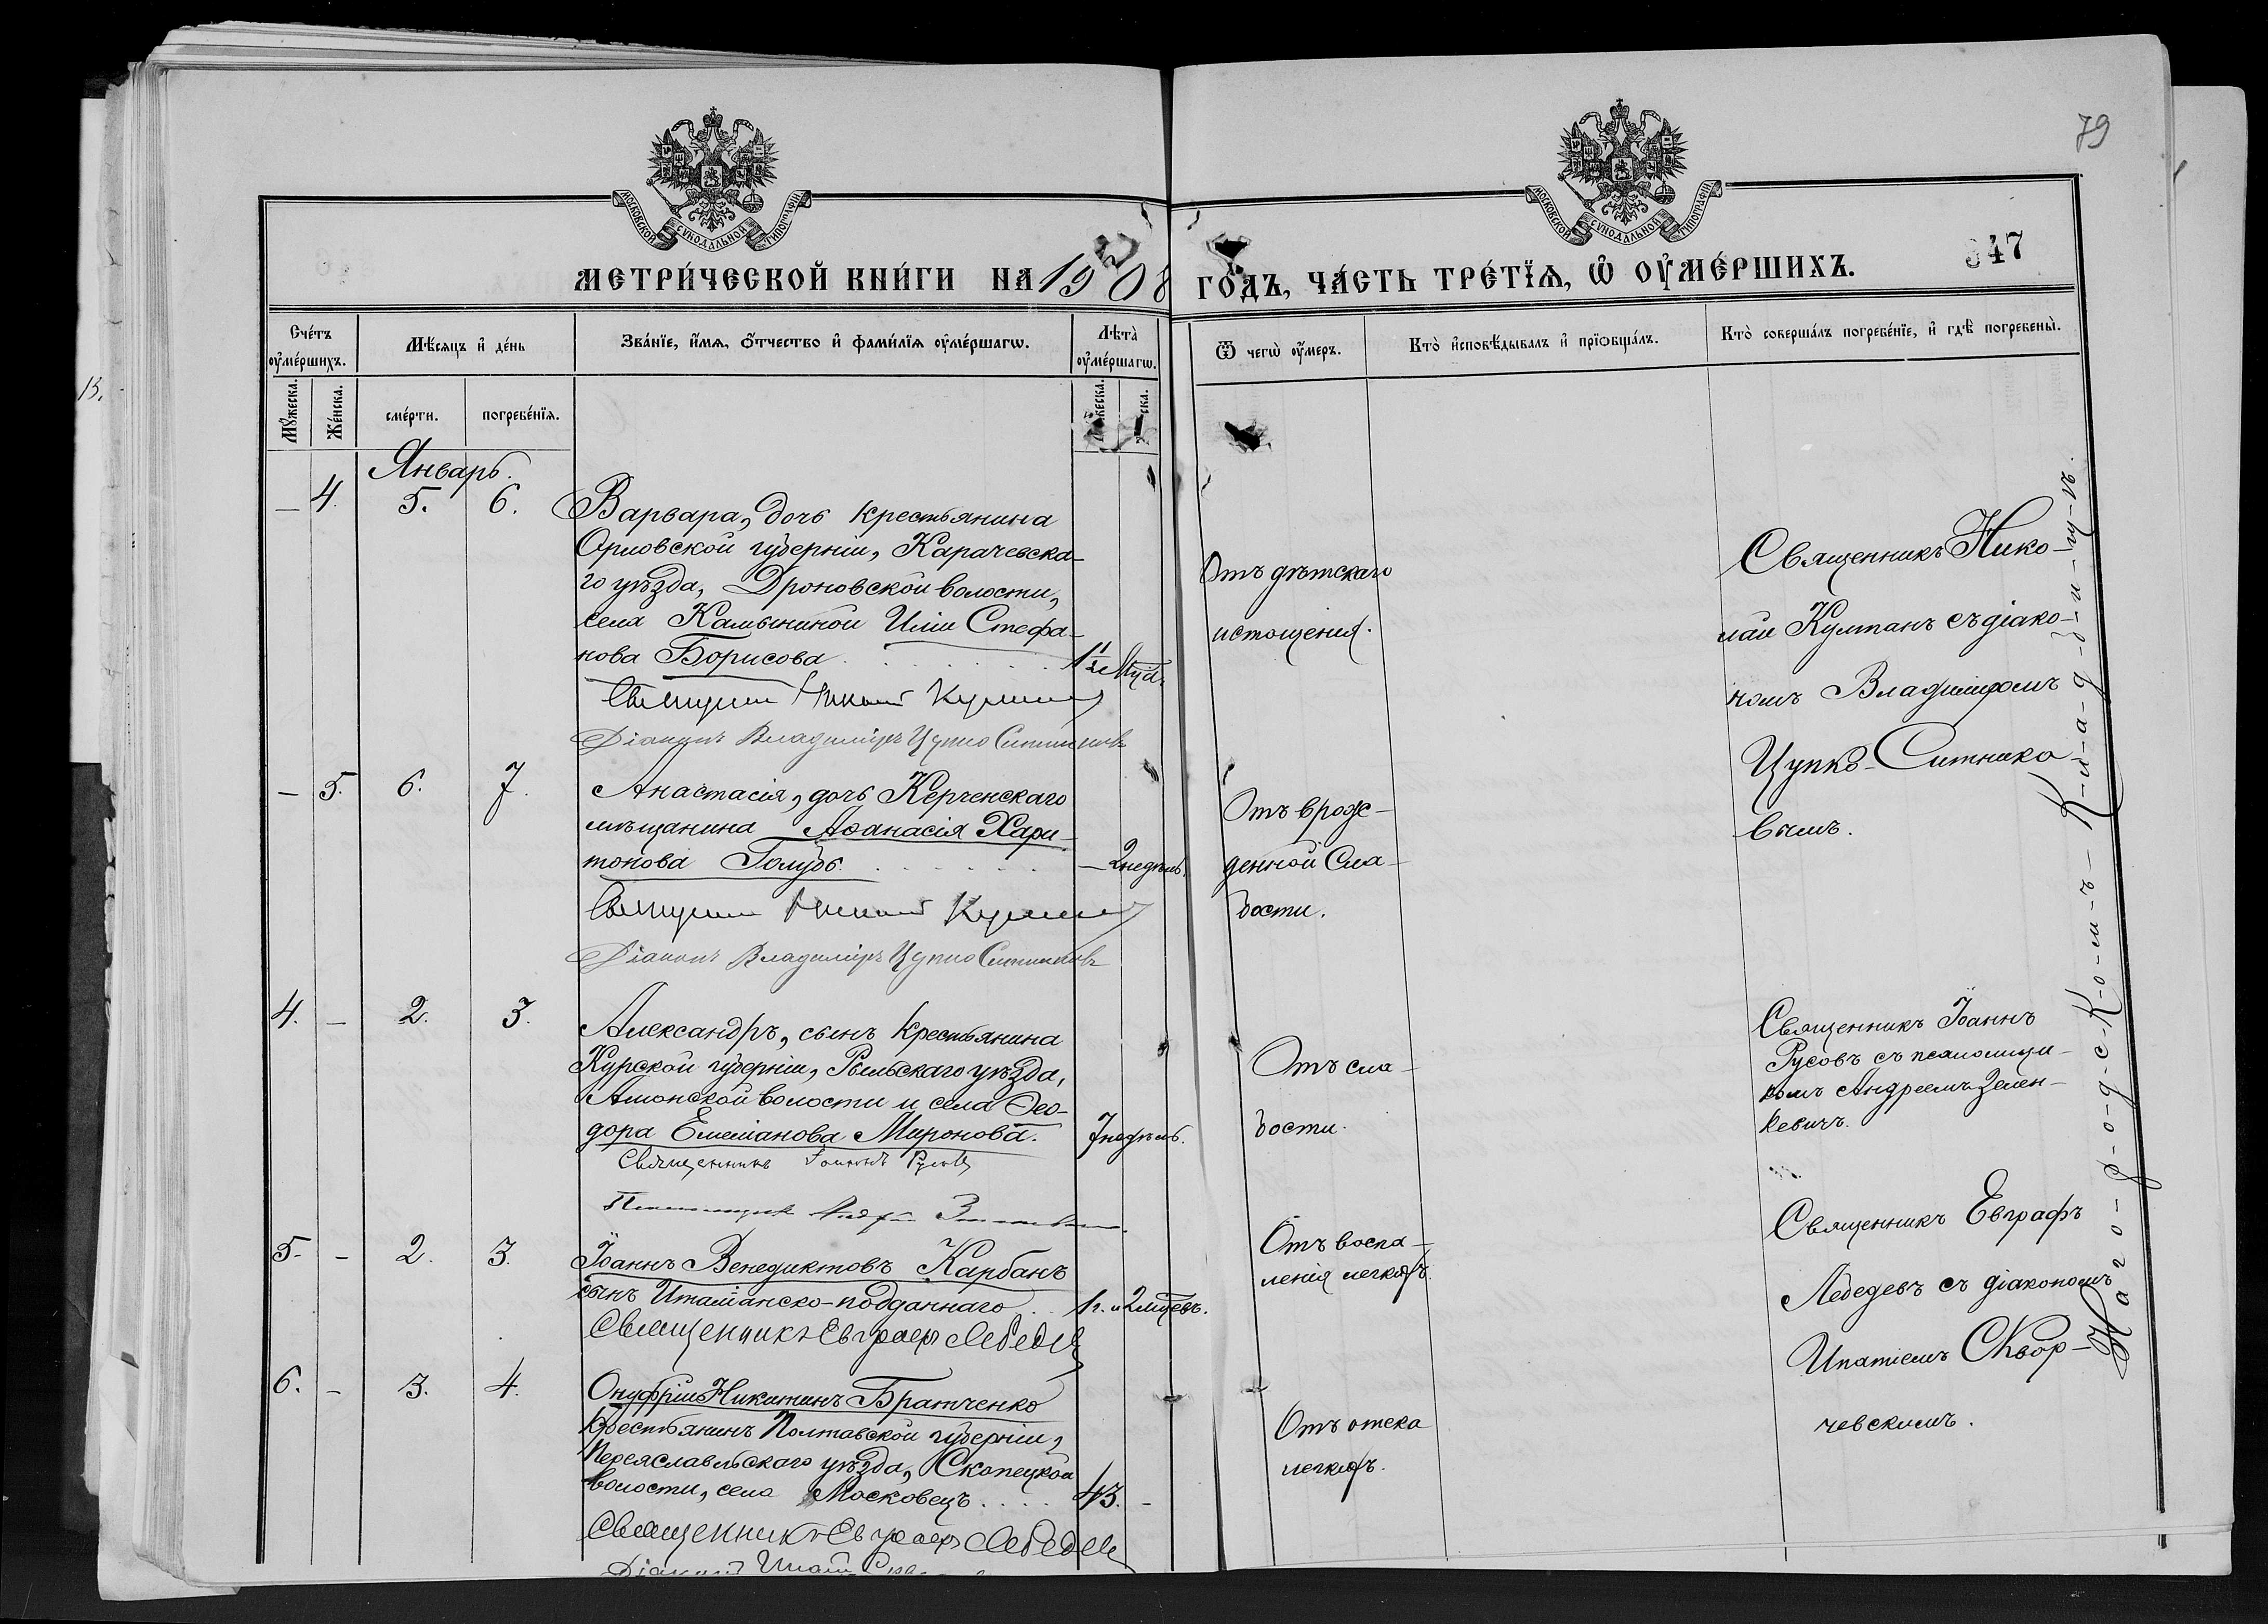 79
МОСКОВСКОЙ СѴНОДАЛЬНОЙ ТИПОГРАФІИ
МОСКОВСКОЙ СѴНОДАЛЬНОЙ ТИПОГРАФІИ
МЕТРИ́ЧЕСКОЙ КНИ́ГИ НА 1908 ГО́ДЪ, ЧА́СТЬ ТРЕ́ТЇѦ, Ѡ ОУ҆МЕ́РШИХЪ.
347
Сче́тъ оу҆ме́ршихъ.
Мѣ́сяцъ и҆ де́нь
Зва́нїе, и҆́мѧ, ѻ҆́тчество и҆ фами́лїѧ оу҆ме́ршагѡ.
Лѣ́та оу҆ме́ршагѡ.
Ѿ чегѡ̀ оу҆́меръ.
Кто̀ и҆сповѣ́дывалъ и҆ прїѡбща́лъ.
Кто̀ соверша́лъ погребе́нїе, и҆ гдѣ̀ погребены̀.
Мꙋ́жеска.
Же́нска.
сме́рти.
погребе́нїѧ.
Январь.
— 4. 5. 6.
Варвара, дочь крестьянина
Орловской губерніи, Карачевска-
го уѣзда, Дроновской волости,
села Камынинои Иліи Стефа-
нова Борисова
1 1/2 м-ца.
Священникъ Николай Кулпанъ
Діаконъ Владиміръ Цупко Ситниковъ
Отъ дѣтскаго
истощенія.
Священникъ Нико-
лай Кулпанъ съ діако-
номъ Владиміромъ
Цупко-Ситнико-
вымъ.
— 5. 6. 7.
Анастасія, дочь Керченскаго
мѣщанина Аѳанасія Хари-
тонова Голубь.
— 2 недѣль.
Священникъ Николай Кулпанъ
Діаконъ Владиміръ Цупко Ситниковъ
Отъ врож-
денной сла-
бости.
4. — 2. 3.
Александръ, сынъ крестьянина
Курской губерніи, Рыльскаго уѣзда,
Амонской волости и села Ѳео-
дора Емеліанова Миронова.
7 недѣль.
Священникъ Іоаннъ Русовъ
Псаломщикъ Андрей Зеленкевичъ
Отъ сла-
бости.
Священникъ Іоаннъ
Русовъ съ псаломщи-
комъ Андреемъ Зелен-
кевичъ.
5. — 2. 3.
Іоаннъ Венедиктовъ Карбанъ
сынъ Италіанско-подданнаго
1 г. и 2 м-цевъ.
Священникъ Евграфъ Лебедевъ
Отъ воспа-
ленія легкихъ.
Священникъ Евграфъ
Лебедевъ съ діакономъ
Ипатіемъ Сквор-
чевскимъ.
6. — 3. 4.
Онуфрій Никитинъ Братченко
Крестьянинъ Полтавской губерніи,
Переяславльскаго уѣзда, Скопецкой
волости, села Московецъ
43. —
Священникъ Евграфъ Лебедевъ
Діаконъ Ипатій
Отъ отека
легкихъ.
На го-р-о-д-с-к-о-м-ъ- К-л-а-д-б-и-щ-ѣ.